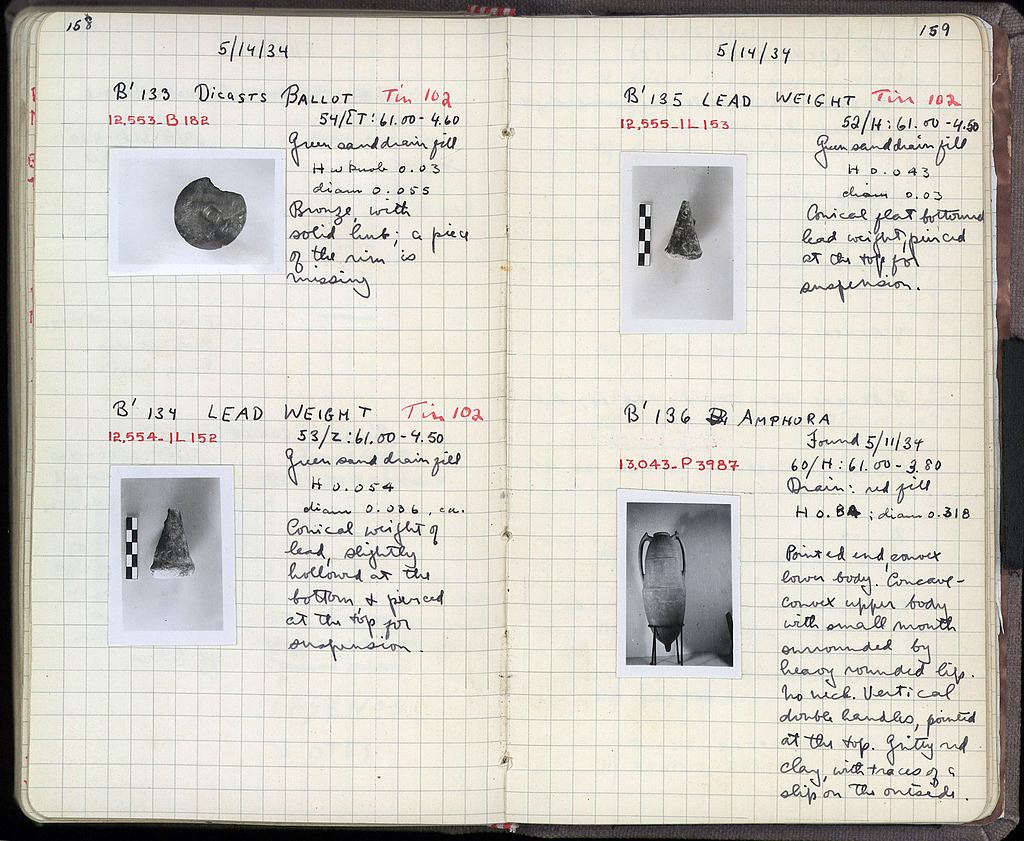 158
5/14/34
B' 133 DICASTS BALLOT Tin 102
12,553-B 182
54/ΣΤ: 61.00-4.60
Green sand drain fill
H w knob 0.03
diam 0.055
Bronze, with
solid hub; a piece
of the rim is
missing
B' 134 LEAD WEIGHT Tin 102
12,554-IL 152
53/Z: 61.00-4.50
Green sand drain fill
H 0.054
diam 0.036, ca.
Conical weight of
lead, slightly
hollowed at the
bottom & pierced
at the top for
suspension.
159
5/14/34
B' 135 LEAD WEIGHT Tin 102
12,555-IL 153
52/H: 61.00-4.50
Green sand drain fill
H 0.043
diam 0.03
Conical flat bottomed
lead weight, pierced
at the top for
suspension.
B' 136 AMPHORA
Found 5/11/34
13,043-P 3987
60/H: 61.00-3.80
Drain: red fill
H 0.84; diam 0.318
Pointed end, convex
lower body. Concave-
convex upper body
with small mouth
surrounded by
heavy rounded lip.
No neck. Vertical
double handles, pointed
at the top. Gritty red
clay, with traces of a
slip on the outside.